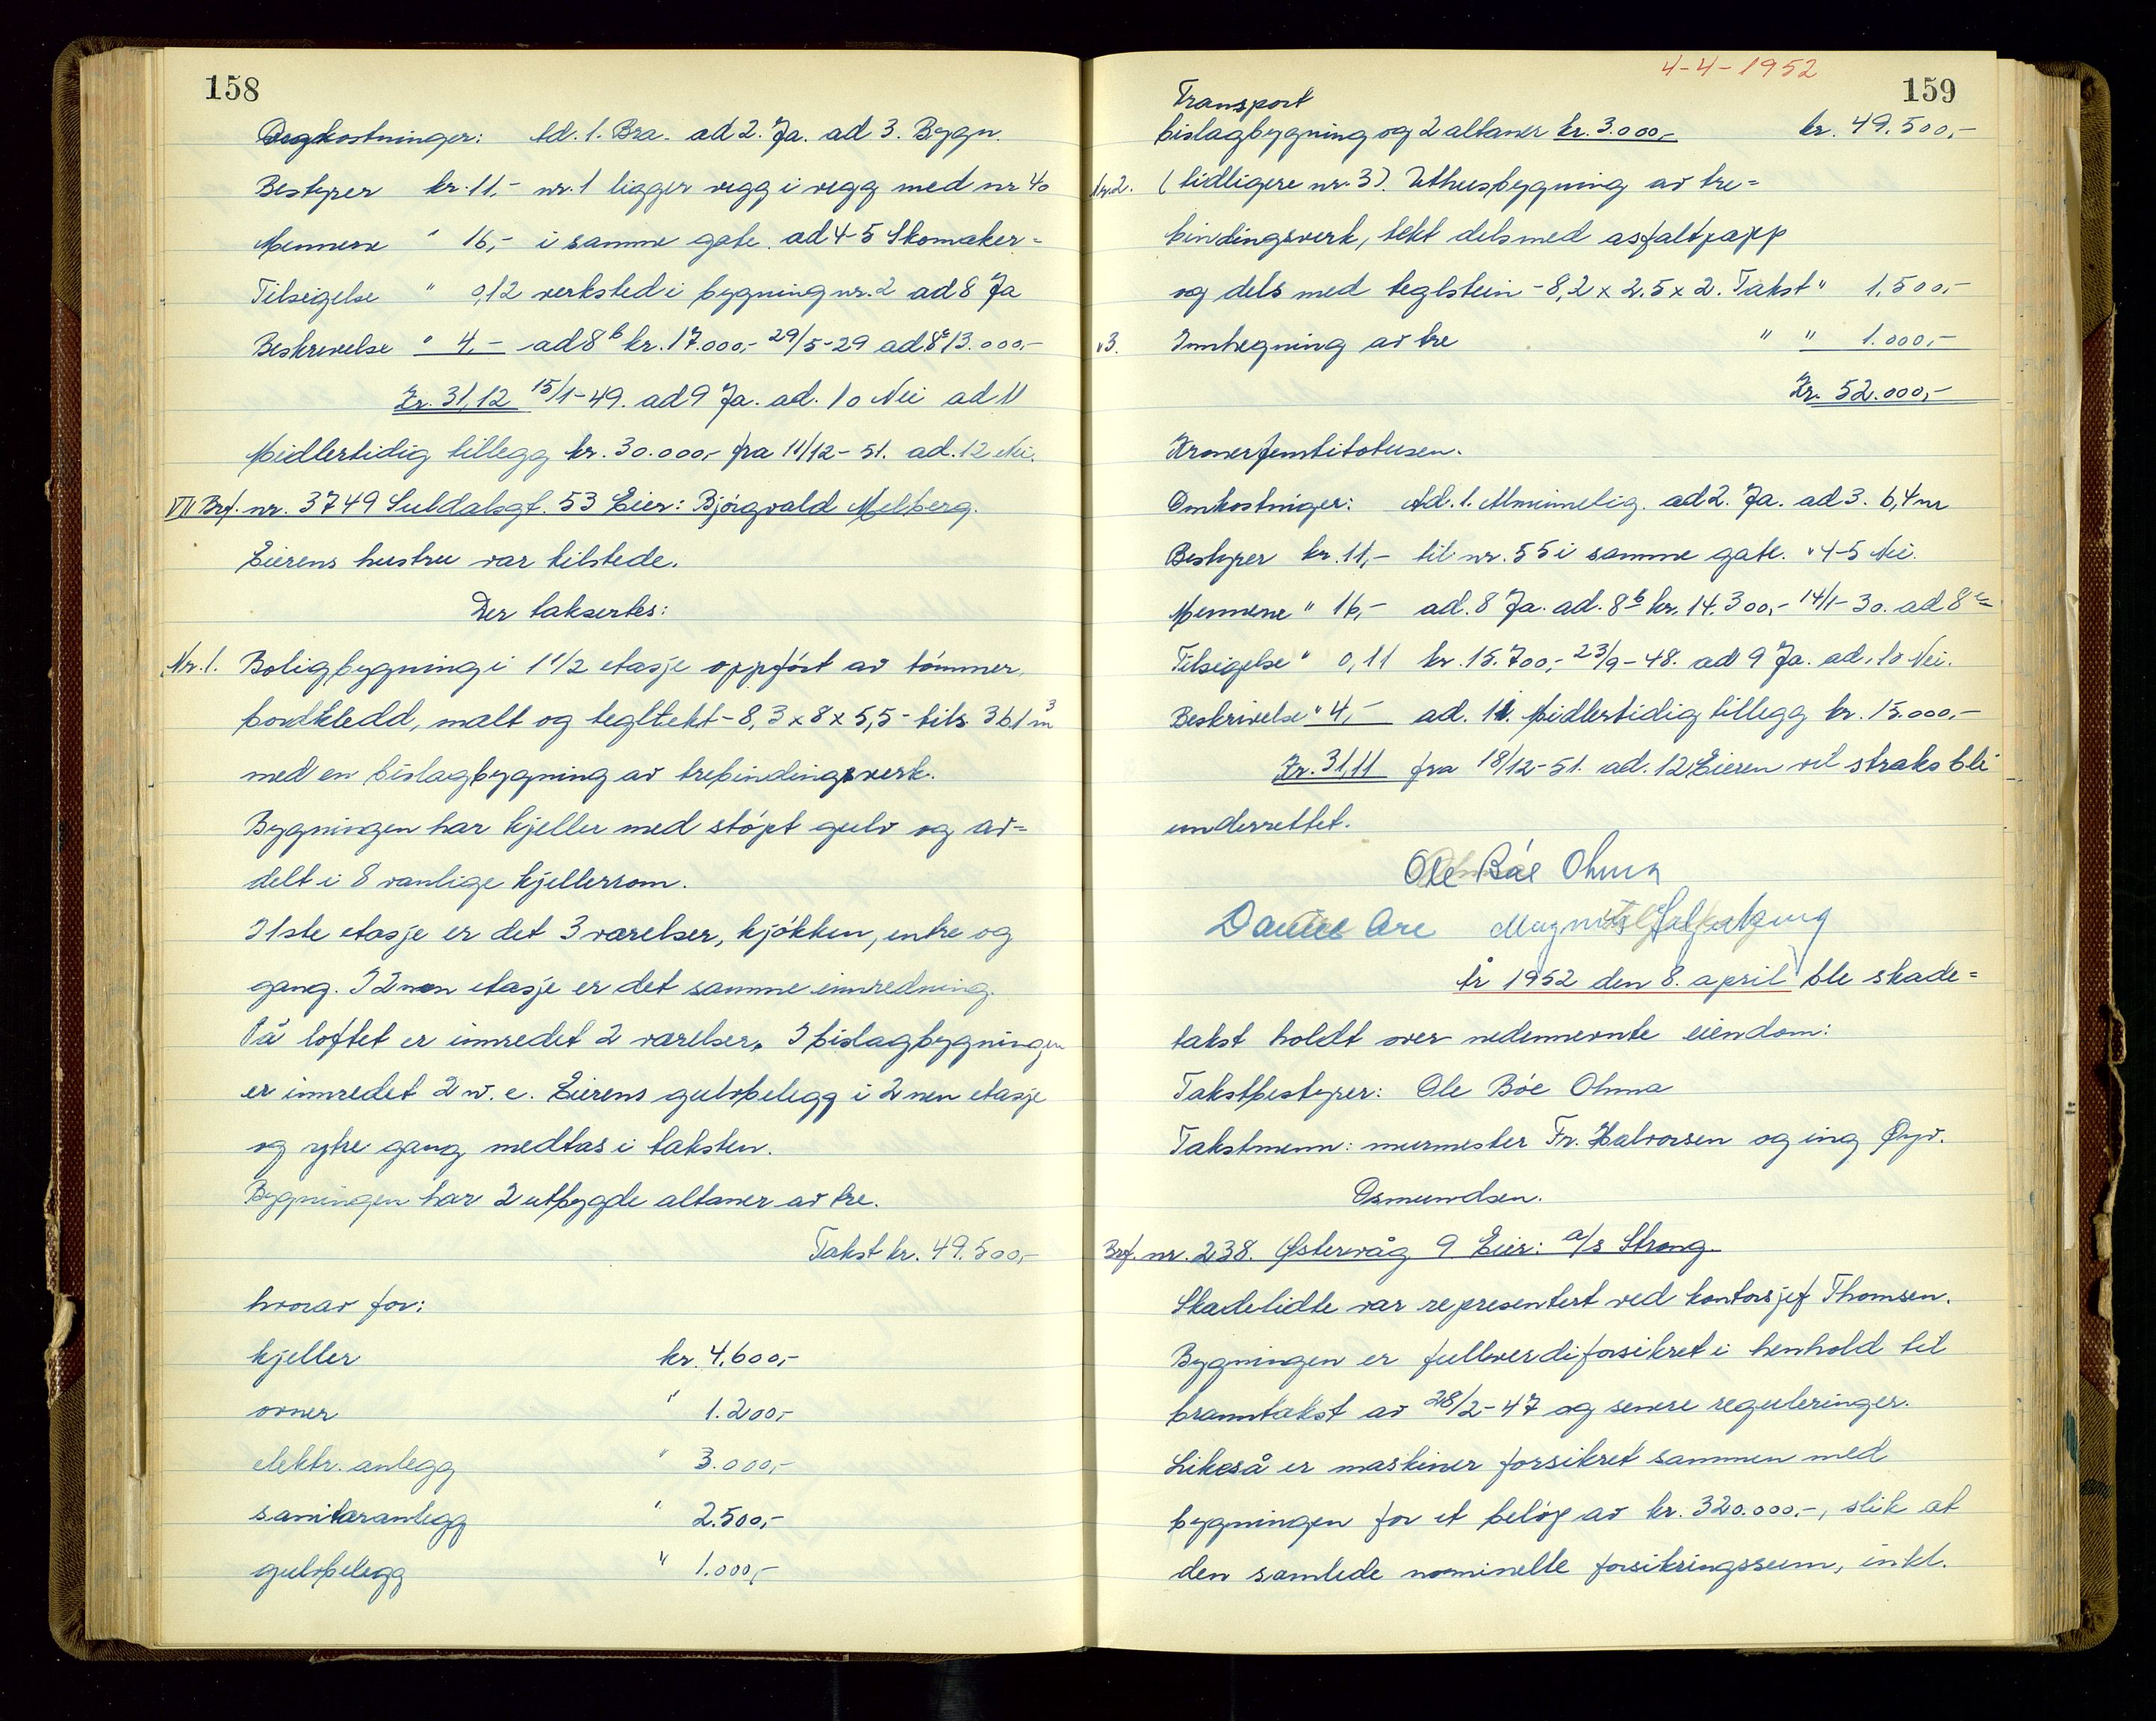 158
Omkostninger: Ad. 1. Bra. ad 2. Ja. ad 3. Bygn.
Bestyrer kr. 11,- nr. 1 ligger vegg i vegg med nr 40
Mennene " 16,- i samme gate. ad 4-5 Skomaker=
Tilsigelse " 0,12 verksted i bygning nr. 2 ad 8 Ja
Beskrivelse " 4,- ad 8b kr. 17.000,- 29/5-29 ad 8c 13.000,-
Kr. 31,12 15/1-49. ad 9 Ja. ad. 10 Nei ad 11
Midlertidig tillegg kr. 30.000,- fra 11/12-51. ad. 12 Nei.
VII Brf. nr. 3749 Suldalsgt. 53 Eier: Bjørgvald Melberg.
Eierens hustru var tilstede.
Der taksertes:
Nr. 1. Boligbygning i 1 1/2 etasje oppført av tømmer,
bordkledd, malt og tegltekt - 8,3 x 8 x 5,5 - tils. 361 m3
med en bislagbygning av trebindingsverk.
Bygningen har kjeller med støpt gulv og av=
delt i 8 vanlige kjellerrom.
I 1ste etasje er det 3 værelser, kjøkken, entre og
gang. I 2nen etasje er det samme innredning.
På loftet er innredet 2 værelser. I bislagbygningen
er innredet 2 w. c. Eierens gulvbelegg i 2nen etasje
og ytre gang medtas i taksten.
Bygningen har 2 utbygde altaner av tre.
Takst kr. 49.500,-
hvorav for:
kjeller kr. 4.600,-
ovner " 1.200,-
elektr. anlegg " 3.000,-
sanitæranlegg " 2.500,-
gulvbelegg " 1.000,-
4-4-1952
159
Transport
bislagbygning og 2 altaner kr. 3.000,- kr. 49.500,-
Nr. 2. (tidligere nr. 3). Uthusbygning av tre=
bindingsverk, tekt dels med asfaltpapp
og dels med teglstein - 8,2 x 2.5 x 2. Takst " 1.500,-
" 3. Innhegning av tre " " 1.000,-
Kr. 52.000,-
Kronerfemtitotusen.
Omkostninger: Ad. 1. Alminnelig. ad 2. Ja. ad 3. 6,4 m
Bestyrer kr. 11,- til nr. 55 i samme gate. " 4-5 Nei.
Mennene " 16,- ad. 8 Ja. ad. 8b kr. 14.300,- 14/1-30. ad 8c
Tilsigelse " 0,11 kr. 15.700,- 23/9-48. ad 9 Ja. ad. 10 Nei.
Beskrivelse " 4,- ad. 11. Midlertidig tillegg kr. 15.000,-
Kr. 31,11 fra 18/12-51. ad. 12 Eieren vil straks bli
underrettet.
Ole Bøe Ohma
Daniel Are Magnus
År 1952 den 8. april ble skade=
takst holdt over nedennevnte eiendom:
Takstbestyrer: Ole Bøe Ohma
Takstmenn: murmester Fr. Halvorsen og ing Øyv.
Osmundsen.
Brf. nr. 238. Østervåg 9 Eier: a/s Strong.
Skadelidte var representert ved kontorsjef Thomsen.
Bygningen er fullverdiforsikret i henhold til
branntakst av 28/2-47 og senere reguleringer.
Likeså er maskiner forsikret sammen med
bygningen for et beløp av kr. 320.000.-, slik at
den samlede nominelle forsikringssum, inkl.